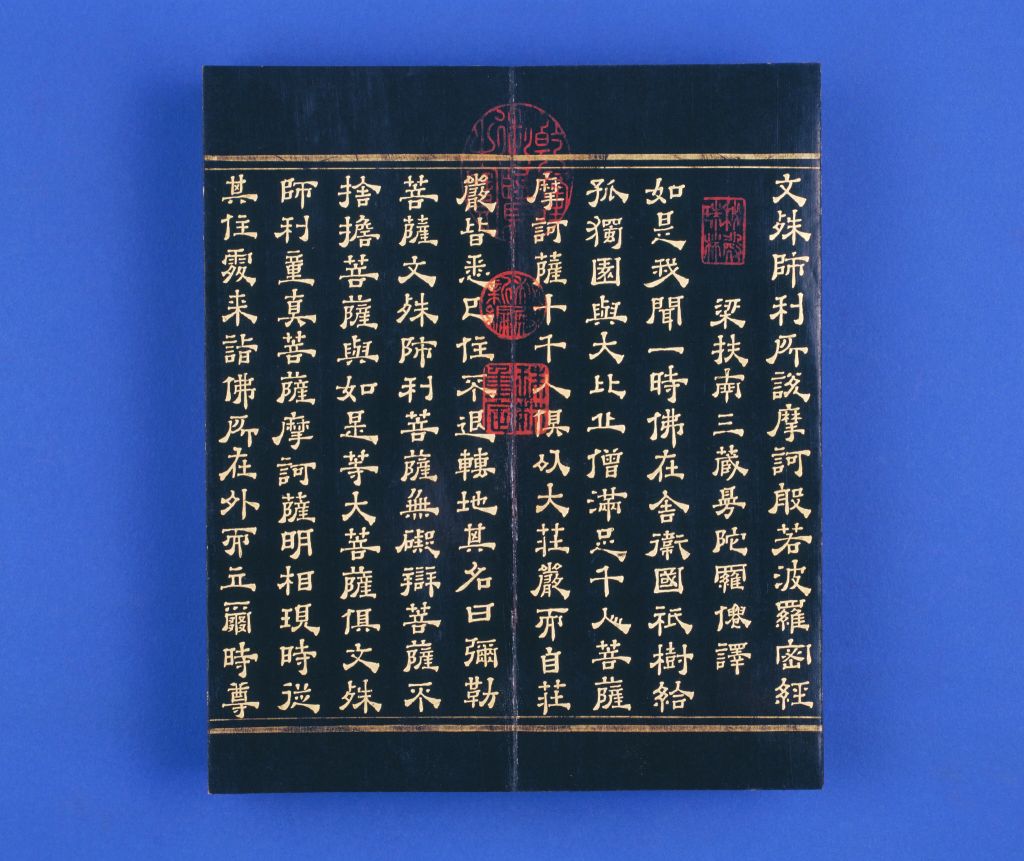 文殊師利所說摩訶般若波羅密經
秘殿珠林
梁扶南三藏曼陀羅僊譯
如是我聞一時佛在舍衛國祇樹給
孤獨園與大比丘僧滿足千人菩薩
摩訶薩十千人俱以大莊嚴而自莊
嚴皆悉已住不退轉地其名曰彌勒
菩薩文殊師利菩薩無礙辯菩薩不
捨擔菩薩與如是等大菩薩俱文殊
師利童真菩薩摩訶薩明相現時從
其住處来詣佛所在外而立爾時尊
秘殿新編
珠林重定